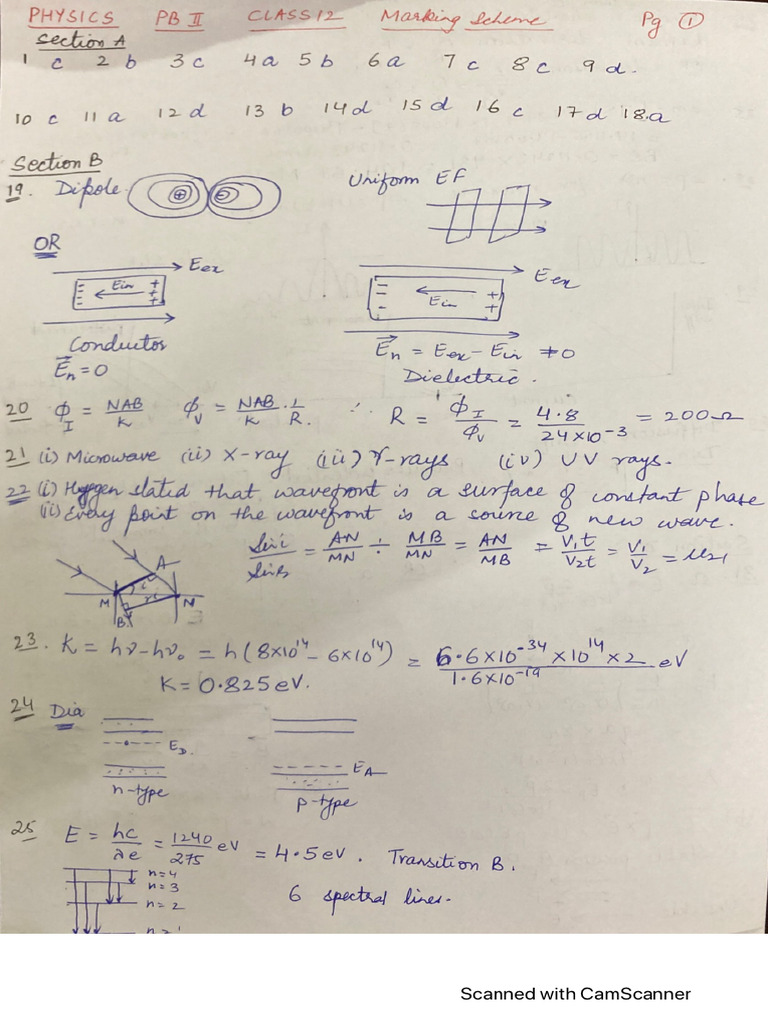 PHYSICS PB II CLASS 12 Marking Scheme Pg ①
Section A
1 c 2 b 3 c 4 a 5 b 6 a 7 c 8 c 9 d.
10 c 11 a 12 d 13 b 14 d 15 d 16 c 17 d 18.a
Section B
19. Dipole. + - Uniform EF
OR
Eex Eex
- - - Ein + + + - - - Ein + + +
Conductor
En = 0
En = Eex - Ein ≠ 0
Dielectric.
20 ΦI = NAB/K ΦV = NAB/K · 1/R. ∴ R = ΦI/ΦV = 4.8/24×10-3 = 200Ω
21 (i) Microwave (ii) X-ray (iii) γ-rays (iv) UV rays.
22 (i) Hygen stated that wavefront is a surface of constant phase
(ii) Every point on the wavefront is a source of new wave.
Sin i/Sin r = AN/MN ÷ MB/MN = AN/MB = V1t/V2t = V1/V2 = μ21
A i r M N B
23. K = hν-hν0 = h(8×10^14 - 6×10^14) = 6.6×10^-34×10^14×2/1.6×10^-19 eV
K = 0.825 eV.
24 Dia
ED EA
n-type p-type
25 E = hc/λe = 1240/275 eV = 4.5 eV. Transition B.
n=4
n=3
n=2
6 spectral lines.
Scanned with CamScanner